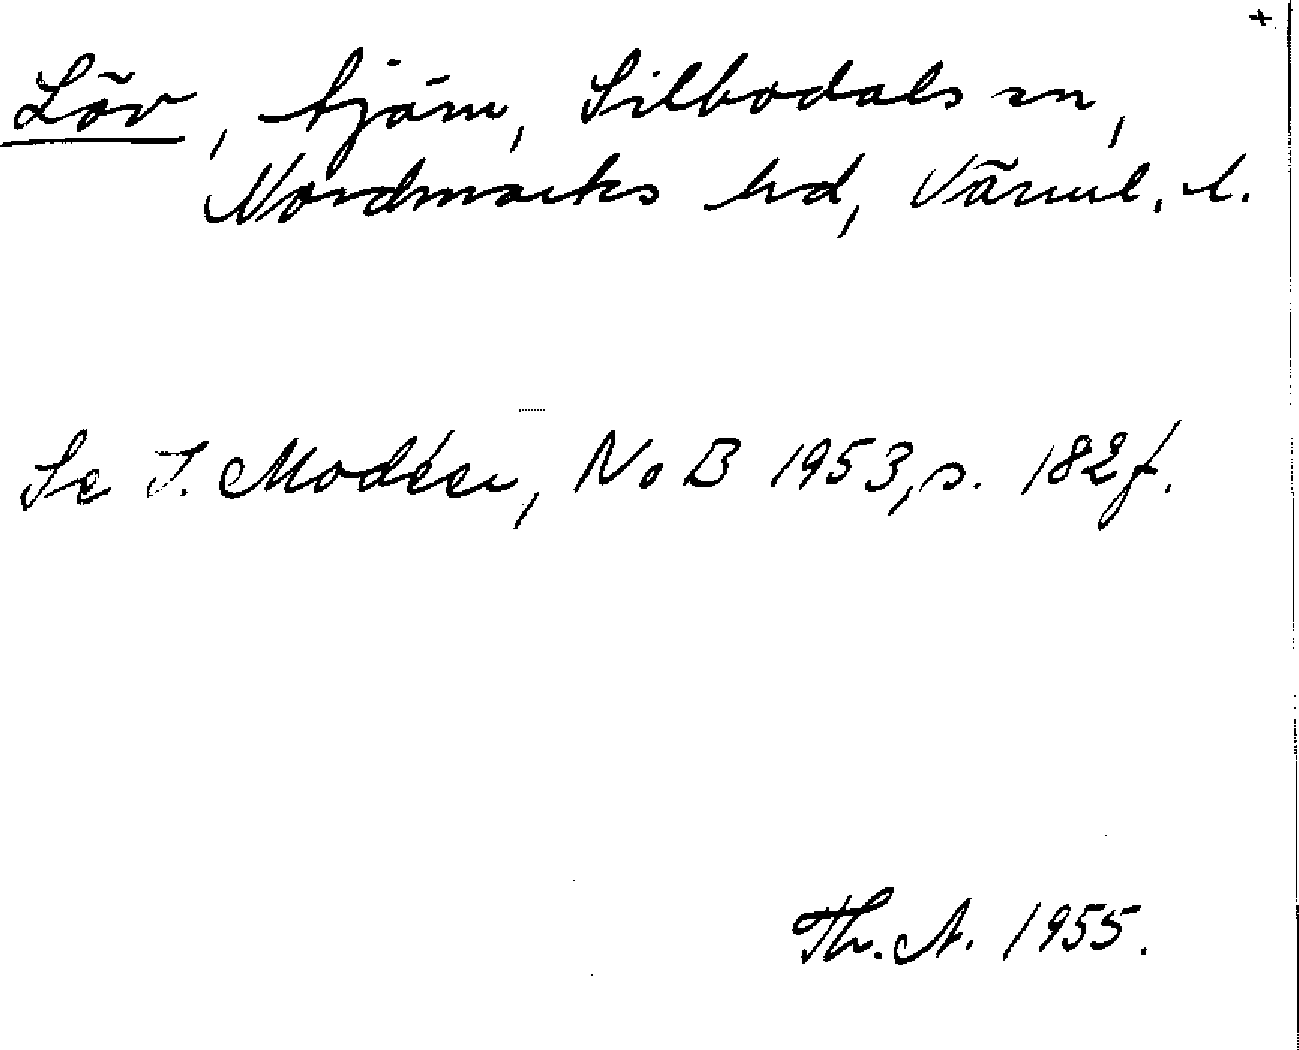 +
Löv, tjärn, Silbodals sn,
Nordmarks hd, Värml. l.
Se I. Modéer, NoB 1953, s. 182 f.
Th. A. 1955.